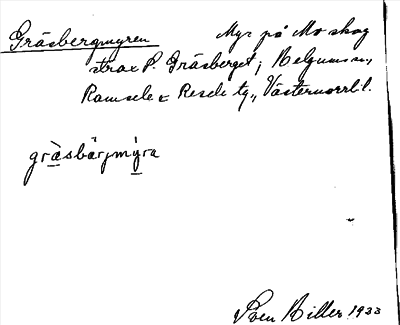 Gräsbergmyren Myr på Mo skog
strax S. Gräsberget; Helgums sn,
Ramsele & Resele tg., Västernorrl. l.
gräsbärjmỳra
Sven Hiller 1933